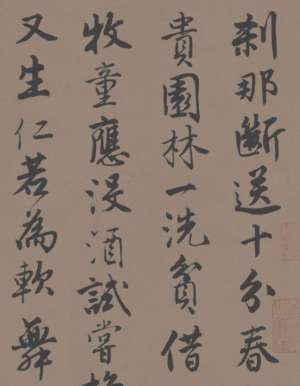 刹那斷送十分春
貴園林一洗貧借
牧童應没酒試嘗
又生仁若為軟舞